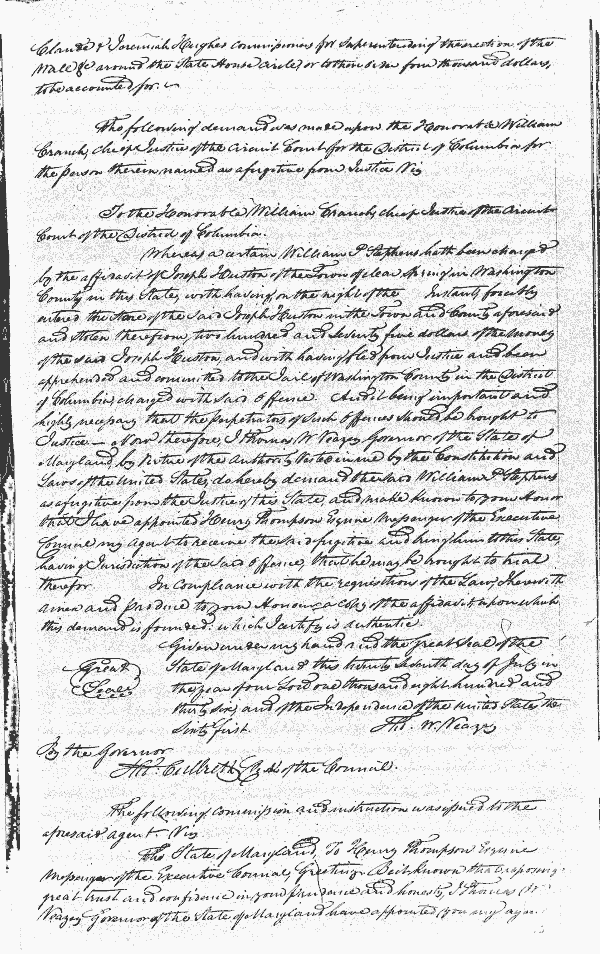 Claude & Jeremiah Hughes commissioners for Superintending the erection of the
Wall &c around the State House Circle, or to their order four thousand dollars,
to be accounted for.
The following demand was made upon the Honorable William
Cranch, chief Justice of the Circuit Court for the District of Columbia for
the person therein named as a fugitive from Justice Viz
To the Honorable William Cranch, chief Justice of the Circuit
Court of the District of Columbia.
Whereas a certain William P. Stephens hath been charged
by the affidavit of Joseph Huston of the Town of clear Spring in Washington
County in this State, with having on the night of the Instant, forcibly
entered the Store of the said Joseph Huston in the Town and County aforesaid
and stolen therefrom, two hundred and seventy five dollars of the money
of the said Joseph Huston, and with having fled from Justice and been
apprehended and committed to the Jail of Washington County in the District
of Columbia, charged with said offence. And it being important and
highly necessary that the perpetrators of such offences should be brought to
Justice — Now Therefore, I Thomas W. Veazey Governor of the State of
Maryland, by virtue of the authority vested in me by the Constitution and
Laws of the United States, do hereby demand the said William P. Stephens
as a fugitive from the Justice of this State, and make known to your Honor
that I have appointed Henry Thompson Esquire Messenger of the Executive
Council my Agent to receive the said fugitive and bring him to this State,
having Jurisdiction of the said offence, that he may be brought to trial
therefor. In compliance with the requisitions of the Law, I herewith
annex and produce to your Honour a Copy of the affidavit upon which
this demand is founded: which I certify is authentic
Given under my hand and the Great Seal of the
Great Seal
State of Maryland this twenty seventh day of July in
the year of our Lord one thousand eight hundred and
thirty six, and of the Independence of the United States the
Sixty first. Th: W. Veazey
By the Governor
Th: Culbreth Clk of the Council.
The following commission and instruction was issued to the
aforesaid agent Viz
The State of Maryland, To Henry Thompson Esquire
Messenger of the Executive Council, Greeting: Be it known that reposing
great trust and confidence in your prudence and honesty, I Thomas W.
Veazey Governor of the State of Maryland have appointed you my agent